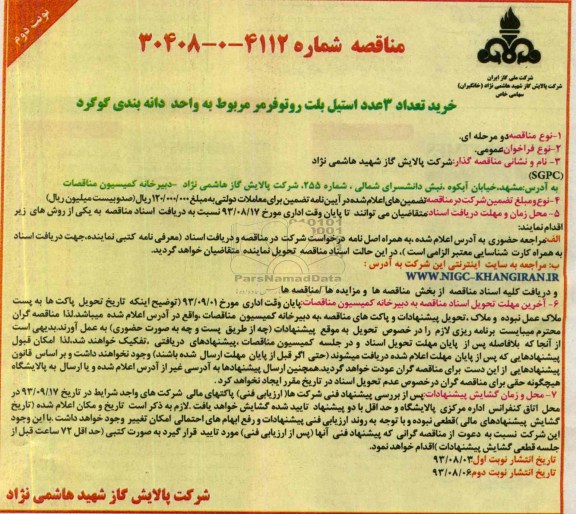 نوبت دوم
مناقصه شماره ۴۱۱۲-۰-۳۰۴۰۸
شرکت ملی گاز ایران
شرکت پالایش گاز شهید هاشمی نژاد (خانگیران)
سهامی خاص
خرید تعداد ۳عدد استیل بلت روتوفرمر مربوط به واحد دانه بندی گوگرد
۱-نوع مناقصه:دو مرحله ای.
۲-نوع فراخوان:عمومی.
۳- نام و نشانی مناقصه گذار:شرکت پالایش گاز شهید هاشمی نژاد
(SGPC)
به آدرس:مشهد،خیابان آبکوه ،نبش دانشسرای شمالی ، شماره ۲۵۵، شرکت پالایش گاز شهید هاشمی نژاد -دبیرخانه کمیسیون مناقصات
۴-نوع ومبلغ تضمین شرکت در مناقصه:تضمین های اعلام شده در آیین نامه تضمین برای معاملات دولتی به مبلغ ۱۲۰/۰۰۰/۰۰۰ریال(صدوبیست میلیون ریال)
۵- محل زمان و مهلت دریافت اسناد:متقاضیان می توانند تا پایان وقت اداری مورخ ۹۳/۰۸/۱۷ نسبت به دریافت اسناد مناقصه به یکی از روش های زیر
اقدام نمایند:
الف:مراجعه حضوری به آدرس اعلام شده ،به همراه اصل نامه درخواست شرکت در مناقصه و دریافت اسناد (معرفی نامه کتبی نماینده،جهت دریافت اسناد
به همراه کارت شناسایی معتبر الزامی است )، در این حالت اسناد مناقصه تحویل نماینده متقاضیان خواهد گردید.
ب: مراجعه به سایت اینترنتی این شرکت به آدرس :
WWW.NIGC-KHANGIRAN.IR
و دریافت کلیه اسناد مناقصه از بخش مناقصه ها و مزایده ها /مناقصه ها
ParsNamadData
۶- آخرین مهلت تحویل اسناد مناقصه به دبیرخانه کمیسیون مناقصات:پایان وقت اداری مورخ ۹۳/۰۹/۰۱ (توضیح اینکه تاریخ تحویل پاکت ها به پست
ملاک عمل نبوده و ملاک ،تحویل پیشنهادات و پاکت های مناقصه ،به دبیرخانه کمیسیون مناقصات ،واقع در آدرس اعلام شده میباشد.لذا مناقصه گران
محترم میبایست برنامه ریزی لازم را در خصوص تحویل به موقع پیشنهادات (چه از طریق پست و چه به صورت حضوری) به عمل آورند.بدیهی است
از آنجا که بلافاصله پس از پایان مهلت تحویل اسناد و در جلسه کمیسیون مناقصات ،پیشنهادهای دریافتی ،تفکیک خواهند شد،لذا امکان قبول
پیشنهادهایی که پس از پایان مهلت اعلام شده دریافت میشوند (حتی اگر قبل از پایان مهلت ارسال شده باشند) وجود نخواهند داشت و بر اساس قانون
پیشنهادهایی از این دست برای مناقصه گران عودت خواهد گردید.همچنین ارسال پیشنهادها به آدرسی غیر از آدرس اعلام شده و یا ارسال به پالایشگاه
هیچگونه حقی برای مناقصه گران درخصوص عدم تحویل اسناد در تاریخ مقرر ایجاد نخواهد کرد .
۷- محل و زمان گشایش پیشنهادات:پس از بررسی پیشنهاد فنی شرکت ها( ارزیابی فنی) پاکتهای مالی شرکت های واجد شرایط در تاریخ ۹۳/۰۹/۱۷ در
محل اتاق کنفرانس اداره مرکزی پالایشگاه و حد اقل با دو پیشنهاد تایید شده گشایش خواهد یافت .لازم به ذکر است تاریخ و مکان اعلام شده (تاریخ
گشایش پیشنهادهای مالی )قطعی نبوده و با توجه به روند ارزیابی فنی پیشنهادات و رفع ابهام های احتمالی امکان تغییر وجود خواهد داشت .با این وجود
این شرکت نسبت به دعوت از مناقصه گرانی که پیشنهاد فنی آنها (پس از ارزیابی فنی) مورد تایید قرار گیرد به صورت کتبی (حد اقل ۷۲ ساعت قبل از
جلسه قطعی گشایش پیشنهادات )اقدام خواهد نمود.
تاریخ انتشار نوبت اول:۹۳/۰۸/۰۳
تاریخ انتشار نوبت دوم:۹۳/۰۸/۰۶
شرکت پالایش گاز شهید هاشمی نژاد